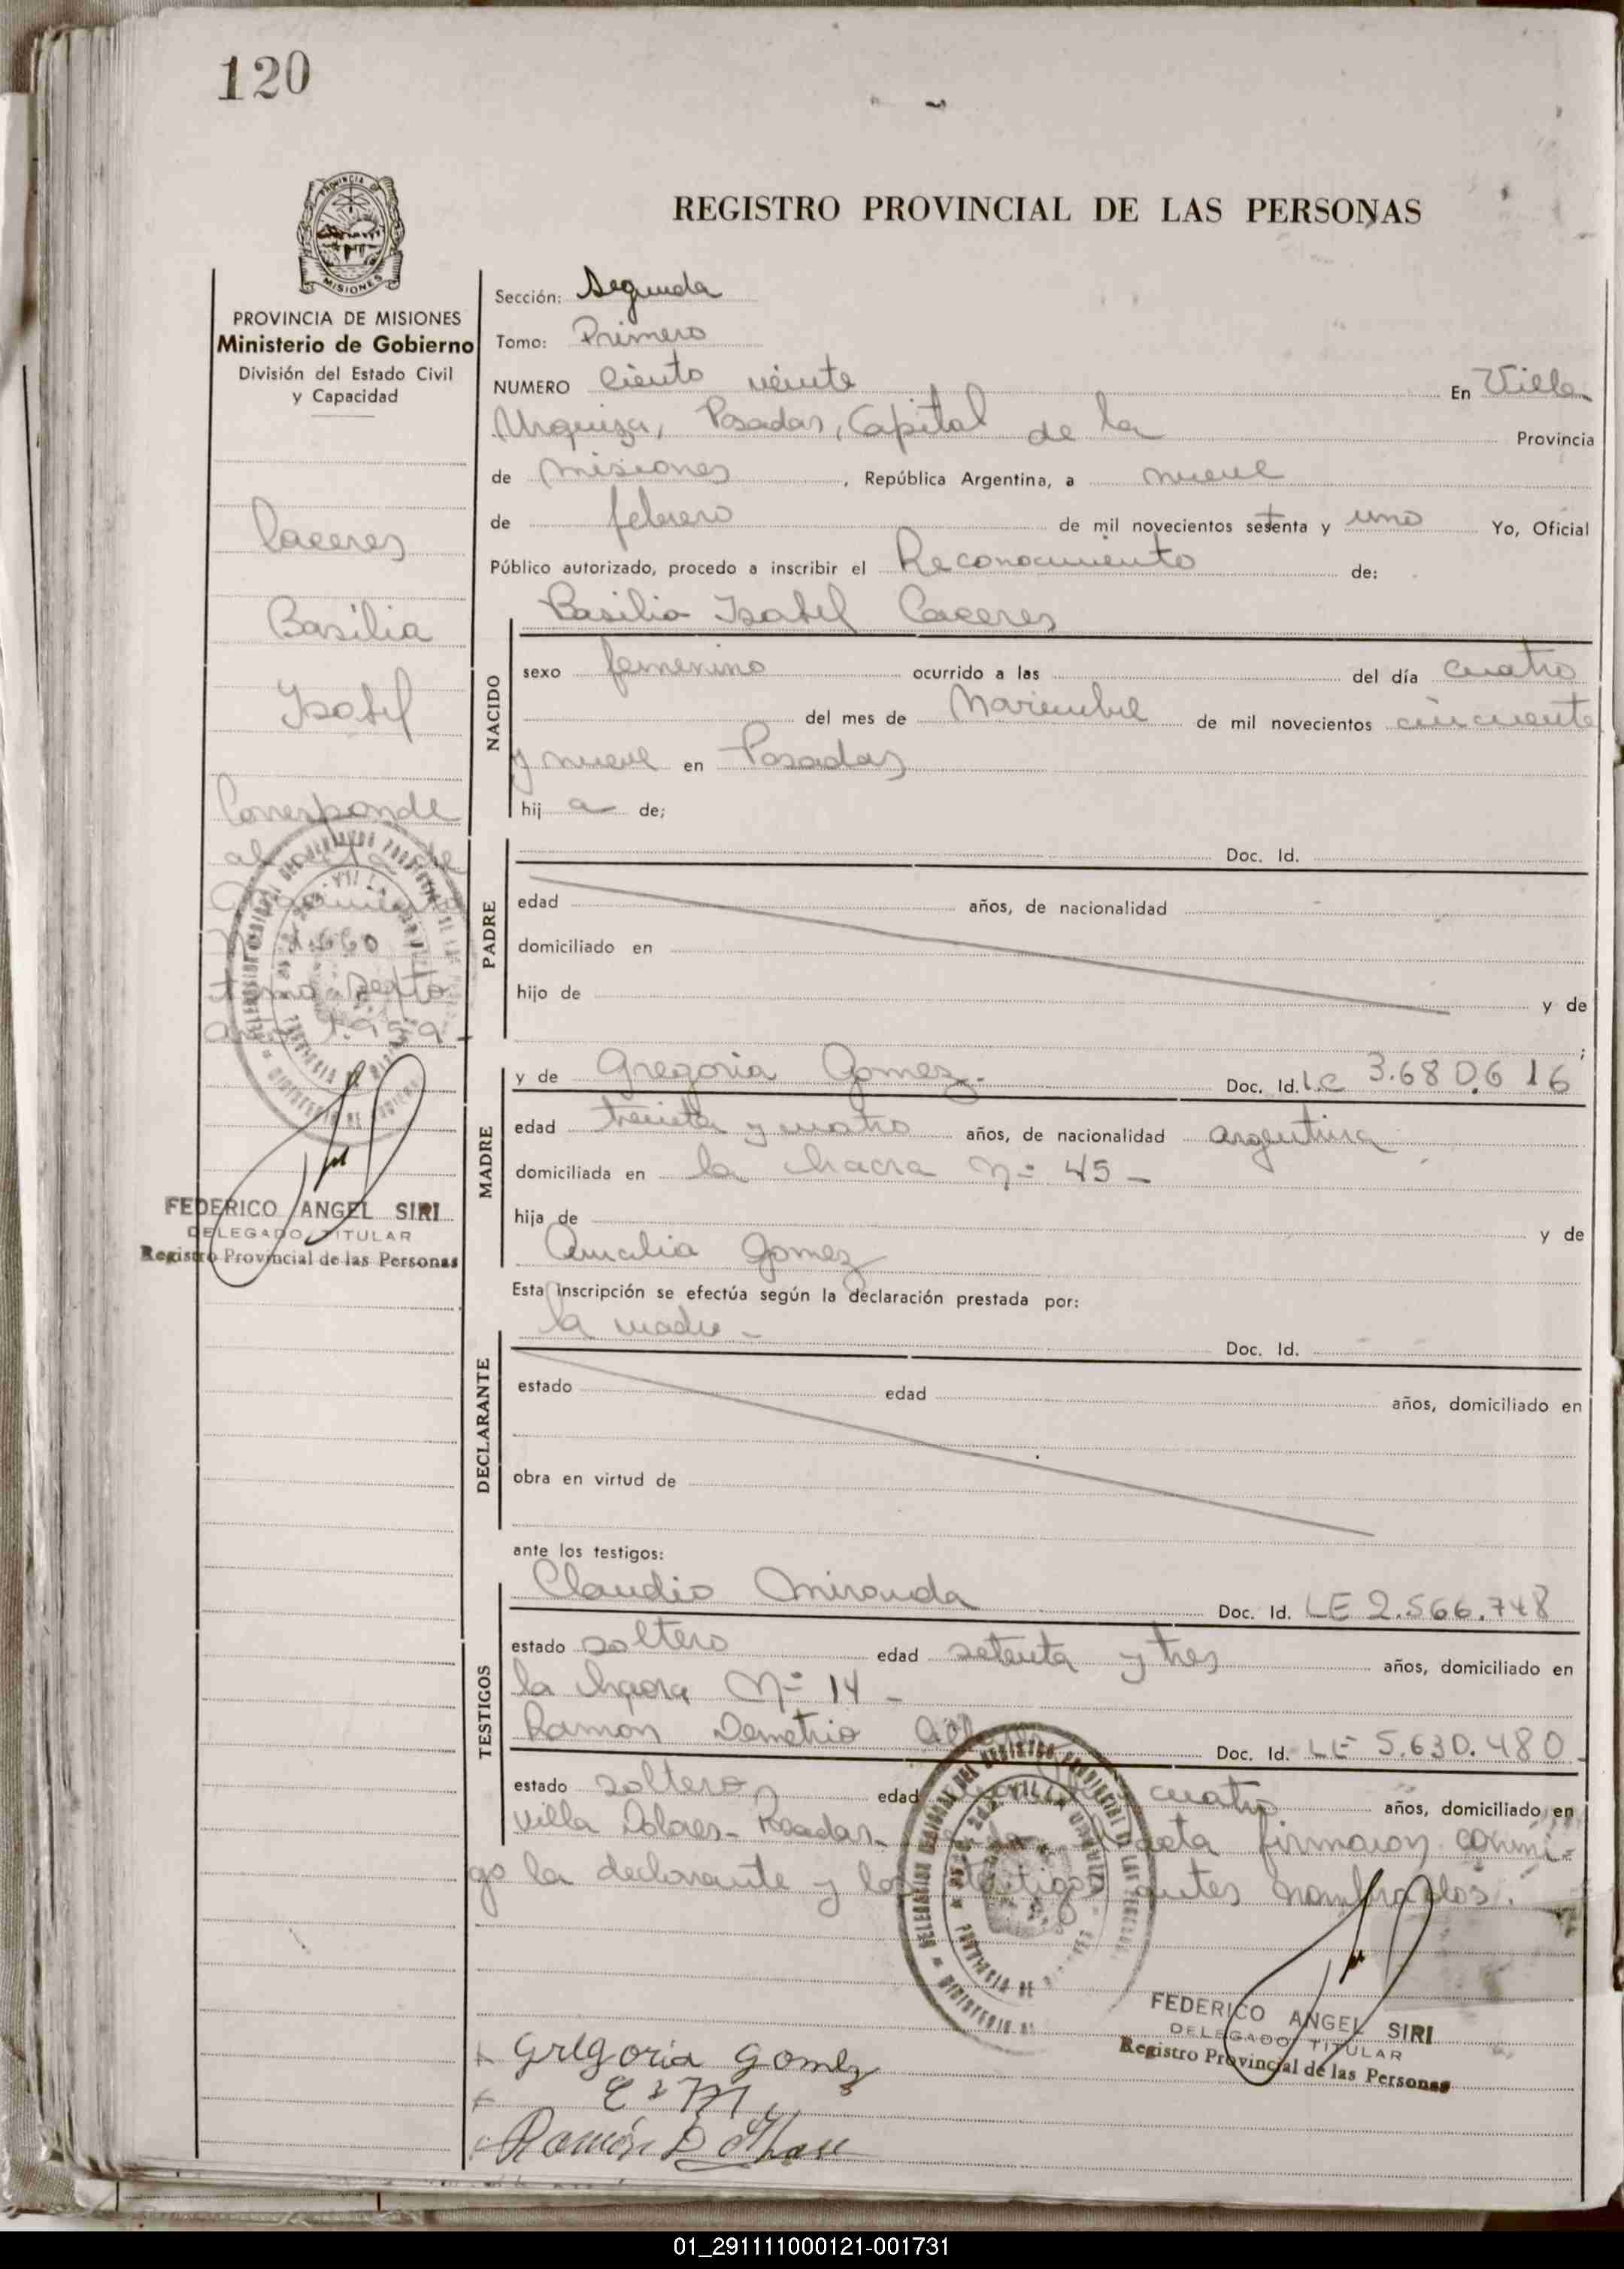 120
REGISTRO PROVINCIAL DE LAS PERSONAS
PROVINCIA DE
MISIONES
PROVINCIA DE MISIONES
Ministerio de Gobierno
División del Estado Civil
y Capacidad
Caceres
Basilia
Isabel
Corresponde
al acta de
Nacimiento
Nº 1.660
tomo sexto
año 1.959-
FEDERICO ANGEL SIRI
DELEGADO TITULAR
Registro Provincial de las Personas
Sección: Segunda
Tomo: Primero
NUMERO Ciento veinte En Villa
Urquiza, Posadas, Capital de la Provincia
de Misiones, República Argentina, a nueve
de febrero de mil novecientos setenta y uno Yo, Oficial
Público autorizado, procedo a inscribir el Reconocimiento de:
Basilia Isabel Caceres
NACIDO
sexo femenino ocurrido a las del día cuatro
del mes de Noviembre de mil novecientos cincuenta
y nueve en Posadas
hij a de;
PADRE
Doc. Id.
edad años, de nacionalidad
domiciliado en
hijo de y de
;
MADRE
y de Gregoria Gomez.- Doc. Id. L.C 3.680.616
edad treinta y cuatro años, de nacionalidad argentina
domiciliada en la chacra Nº 45 -
hija de y de
Amalia Gomez
Esta inscripción se efectúa según la declaración prestada por:
la madre -
DECLARANTE
Doc. Id.
estado edad años, domiciliado en
obra en virtud de
ante los testigos:
TESTIGOS
Claudio Miranda Doc. Id. LE 2.566.748
estado soltero edad setenta y tres años, domiciliado en
la chacra Nº 14 -
Ramon Demetrio Doc. Id. LE 5.630.480.
estado soltero edad cuatro años, domiciliado en
Villa Dolores- Posadas. acta firmaron conmi-
go la declarante y los testigos antes nombrados.
FEDERICO ANGEL SIRI
DELEGADO TITULAR
Registro Provincial de las Personas
Gregoria Gomez
Ramón D
01_291111000121-001731